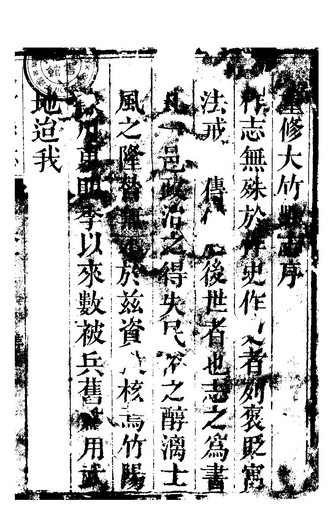 重修大竹縣志序
作志無殊於作史作史者列褒貶寓
法戒 傳 後世者也志之為書
凡一邑政治之得失民 之醇漓士
風之隆替無 於兹資 核焉竹陽
 用 明季以來數被兵舊 用武
地迨我
館